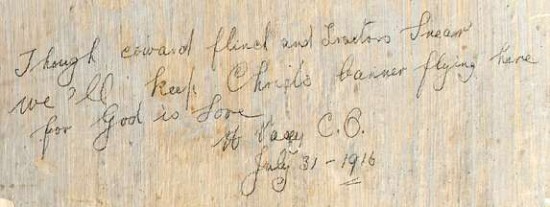 Though coward flinch and Traitors Snear
we'll keep Christs banner flying here
for God is Love
H Vasey C.O.
July 31 - 1916